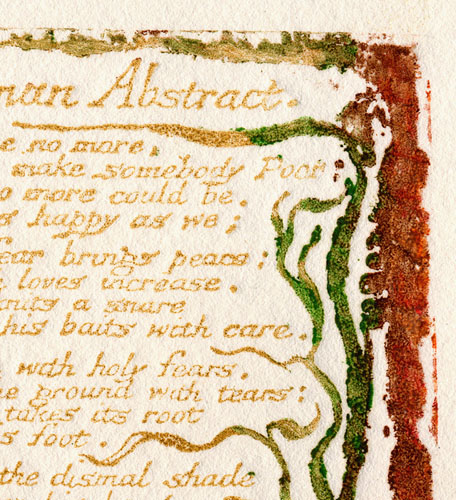 man Abstract.
e no more,
make somebody Poor
o more could be,
s happy as we;
fear brings peace;
loves increase.
a snare
his baits with care.
with holy fears,
ground with tears:
takes its root
s foot.
the dismal shade